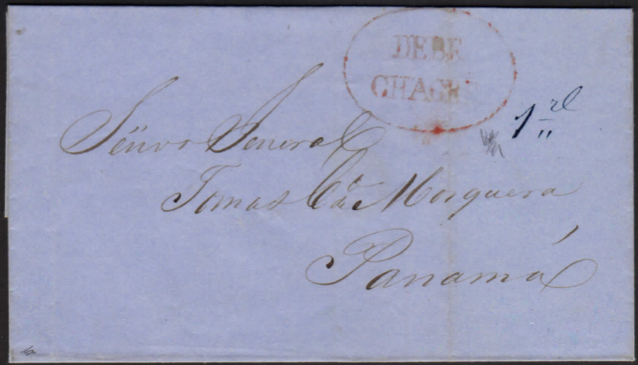 DEBE
CHAGRES
1 rl
Señor General
Tomas C. de Mosquera
Panamá